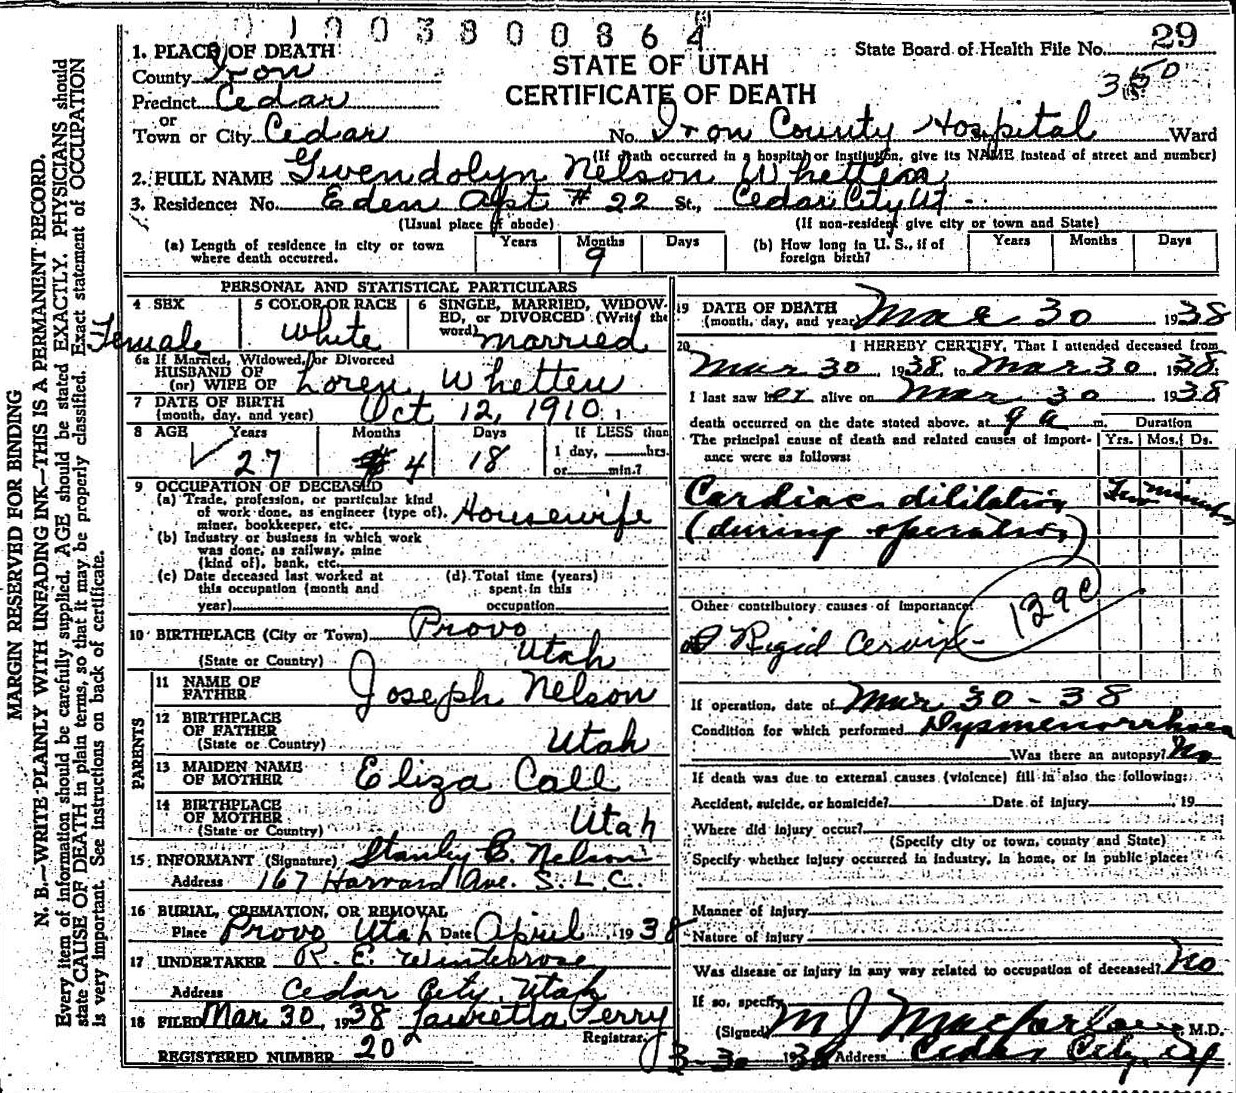 0190380086 4
State Board of Health File No. 29
350
STATE OF UTAH
CERTIFICATE OF DEATH
1. PLACE OF DEATH
County Iron
Precinct Cedar
or
Town or City Cedar No. Iron County Hospital St. Ward
(If death occurred in a hospital or institution, give its NAME instead of street and number)
2. FULL NAME Gwendolyn Nelson Whetten
3. Residence: No. Eden Apt # 22 St., Cedar City Ut.
(Usual place of abode) (If non-resident give city or town and State)
(a) Length of residence in city or town where death occurred. Years Months 9 Days
(b) How long in U. S., if of foreign birth? Years Months Days
PERSONAL AND STATISTICAL PARTICULARS
4 SEX Female
5 COLOR OR RACE White
6 SINGLE, MARRIED, WIDOW-
ED, or DIVORCED (Write the
word) married
6a If Married, Widowed, or Divorced
HUSBAND OF
(or) WIFE OF Loren Whetten
7 DATE OF BIRTH
(month, day, and year) Oct 12, 1910
8 AGE Years 27 Months 4 Days 18 If LESS than
1 day, hrs.
or min.?
9 OCCUPATION OF DECEASED
(a) Trade, profession, or particular kind
of work done, as engineer (type of),
miner, bookkeeper, etc. Housewife
(b) Industry or business in which work
was done, as railway, mine
(kind of), bank, etc.
(c) Date deceased last worked at
this occupation (month and
year)
(d) Total time (years)
spent in this
occupation
10 BIRTHPLACE (City or Town) Provo
(State or Country) Utah
PARENTS
11 NAME OF
FATHER Joseph Nelson
12 BIRTHPLACE
OF FATHER
(State or Country) Utah
13 MAIDEN NAME
OF MOTHER Eliza Call
14 BIRTHPLACE
OF MOTHER
(State or Country) Utah
15 INFORMANT (Signature) Stanley C. Nelson
Address 167 Harvard Ave. S.L.C.
16 BURIAL, CREMATION, OR REMOVAL
Place Provo Utah Date April 1938
17 UNDERTAKER R. E. Winterrose
Address Cedar City, Utah
18 FILED Mar 30, 1938 Lauretta Perry
Registrar.
REGISTERED NUMBER 20
19 DATE OF DEATH
(month, day, and year) Mar 30 1938
20 I HEREBY CERTIFY, That I attended deceased from
Mar 30, 1938, to Mar 30, 1938.
I last saw her alive on Mar 30 1938
death occurred on the date stated above, at 9 a m.
Duration
Yrs. Mos. Ds.
The principal cause of death and related causes of import-
ance were as follows:
Cardiac dilitation Few minutes
(during operation)
Other contributory causes of importance:
Rigid Cervix
139c
If operation, date of Mar 30-38
Condition for which performed Dysmenorrhoea
Was there an autopsy? No
If death was due to external causes (violence) fill in also the following:
Accident, suicide, or homicide? Date of injury 19
Where did injury occur?
(Specify city or town, county and State)
Specify whether injury occurred in industry, in home, or in public place:
Manner of injury
Nature of injury
Was disease or injury in any way related to occupation of deceased? No
If so, specify
(Signed) M J Macfarlane, M.D.
3-30 1938 Address Cedar City, Ut
MARGIN RESERVED FOR BINDING
N. B.—WRITE PLAINLY WITH UNFADING INK—THIS IS A PERMANENT RECORD.
Every item of information should be carefully supplied. AGE should be stated EXACTLY. PHYSICIANS should
state CAUSE OF DEATH in plain terms, so that it may be properly classified. Exact statement of OCCUPATION
is very important. See instructions on back of certificate.